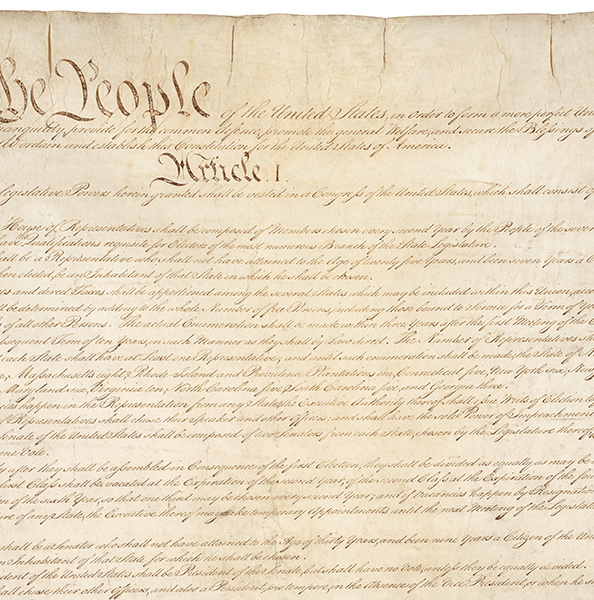 he People of the United States, in Order to form a more perfect Un
anquility, provide for the common defence, promote the general Welfare, and secure the Blessings of
ordain and establish this Constitution for the United States of America.
Article. I.
legislative Powers herein granted shall be vested in a Congress of the United States, which shall consist of
House of Representatives shall be composed of Members chosen every second Year by the People of the seve
have Qualifications requisite for Electors of the most numerous Branch of the State Legislature.
all be a Representative who shall not have attained to the Age of twenty five Years, and been seven Years a C
when elected, be an Inhabitant of that State in which he shall be chosen.
es and direct Taxes shall be apportioned among the several States which may be included within this Union, acco
ll be determined by adding to the whole Number of free Persons, including those bound to Service for a Term of Years
of all other Persons. The actual Enumeration shall be made within three Years after the first Meeting of the C
bsequent Term of ten Years, in such Manner as they shall by Law direct. The Number of Representatives sh
each State shall have at Least one Representative; and until such enumeration shall be made, the State of N
e, Massachusetts eight, Rhode-Island and Providence Plantations one, Connecticut five, New-York six, New
Maryland six, Virginia ten, North Carolina five, South Carolina five, and Georgia three.
cies happen in the Representation from any State, the Executive Authority thereof shall issue Writs of Election to
of Representatives shall chuse their Speaker and other Officers; and shall have the sole Power of Impeachment
Senate of the United States shall be composed of two Senators from each State, chosen by the Legislature thereof,
one Vote.
ly after they shall be assembled in Consequence of the first Election, they shall be divided as equally as may be
first Class shall be vacated at the Expiration of the second Year, of the second Class at the Expiration of the fou
on of the sixth Year, so that one third may be chosen every second Year; and if Vacancies happen by Resignation
ure of any State, the Executive thereof may make temporary Appointments until the next Meeting of the Legislat
shall be a Senator who shall not have attained to the Age of thirty Years, and been nine Years a Citizen of the Un
an Inhabitant of that State for which he shall be chosen.
ident of the United States shall be President of the Senate, but shall have no Vote, unless they be equally divided.
all chuse their other Officers, and also a President pro tempore, in the Absence of the Vice President, or when he s